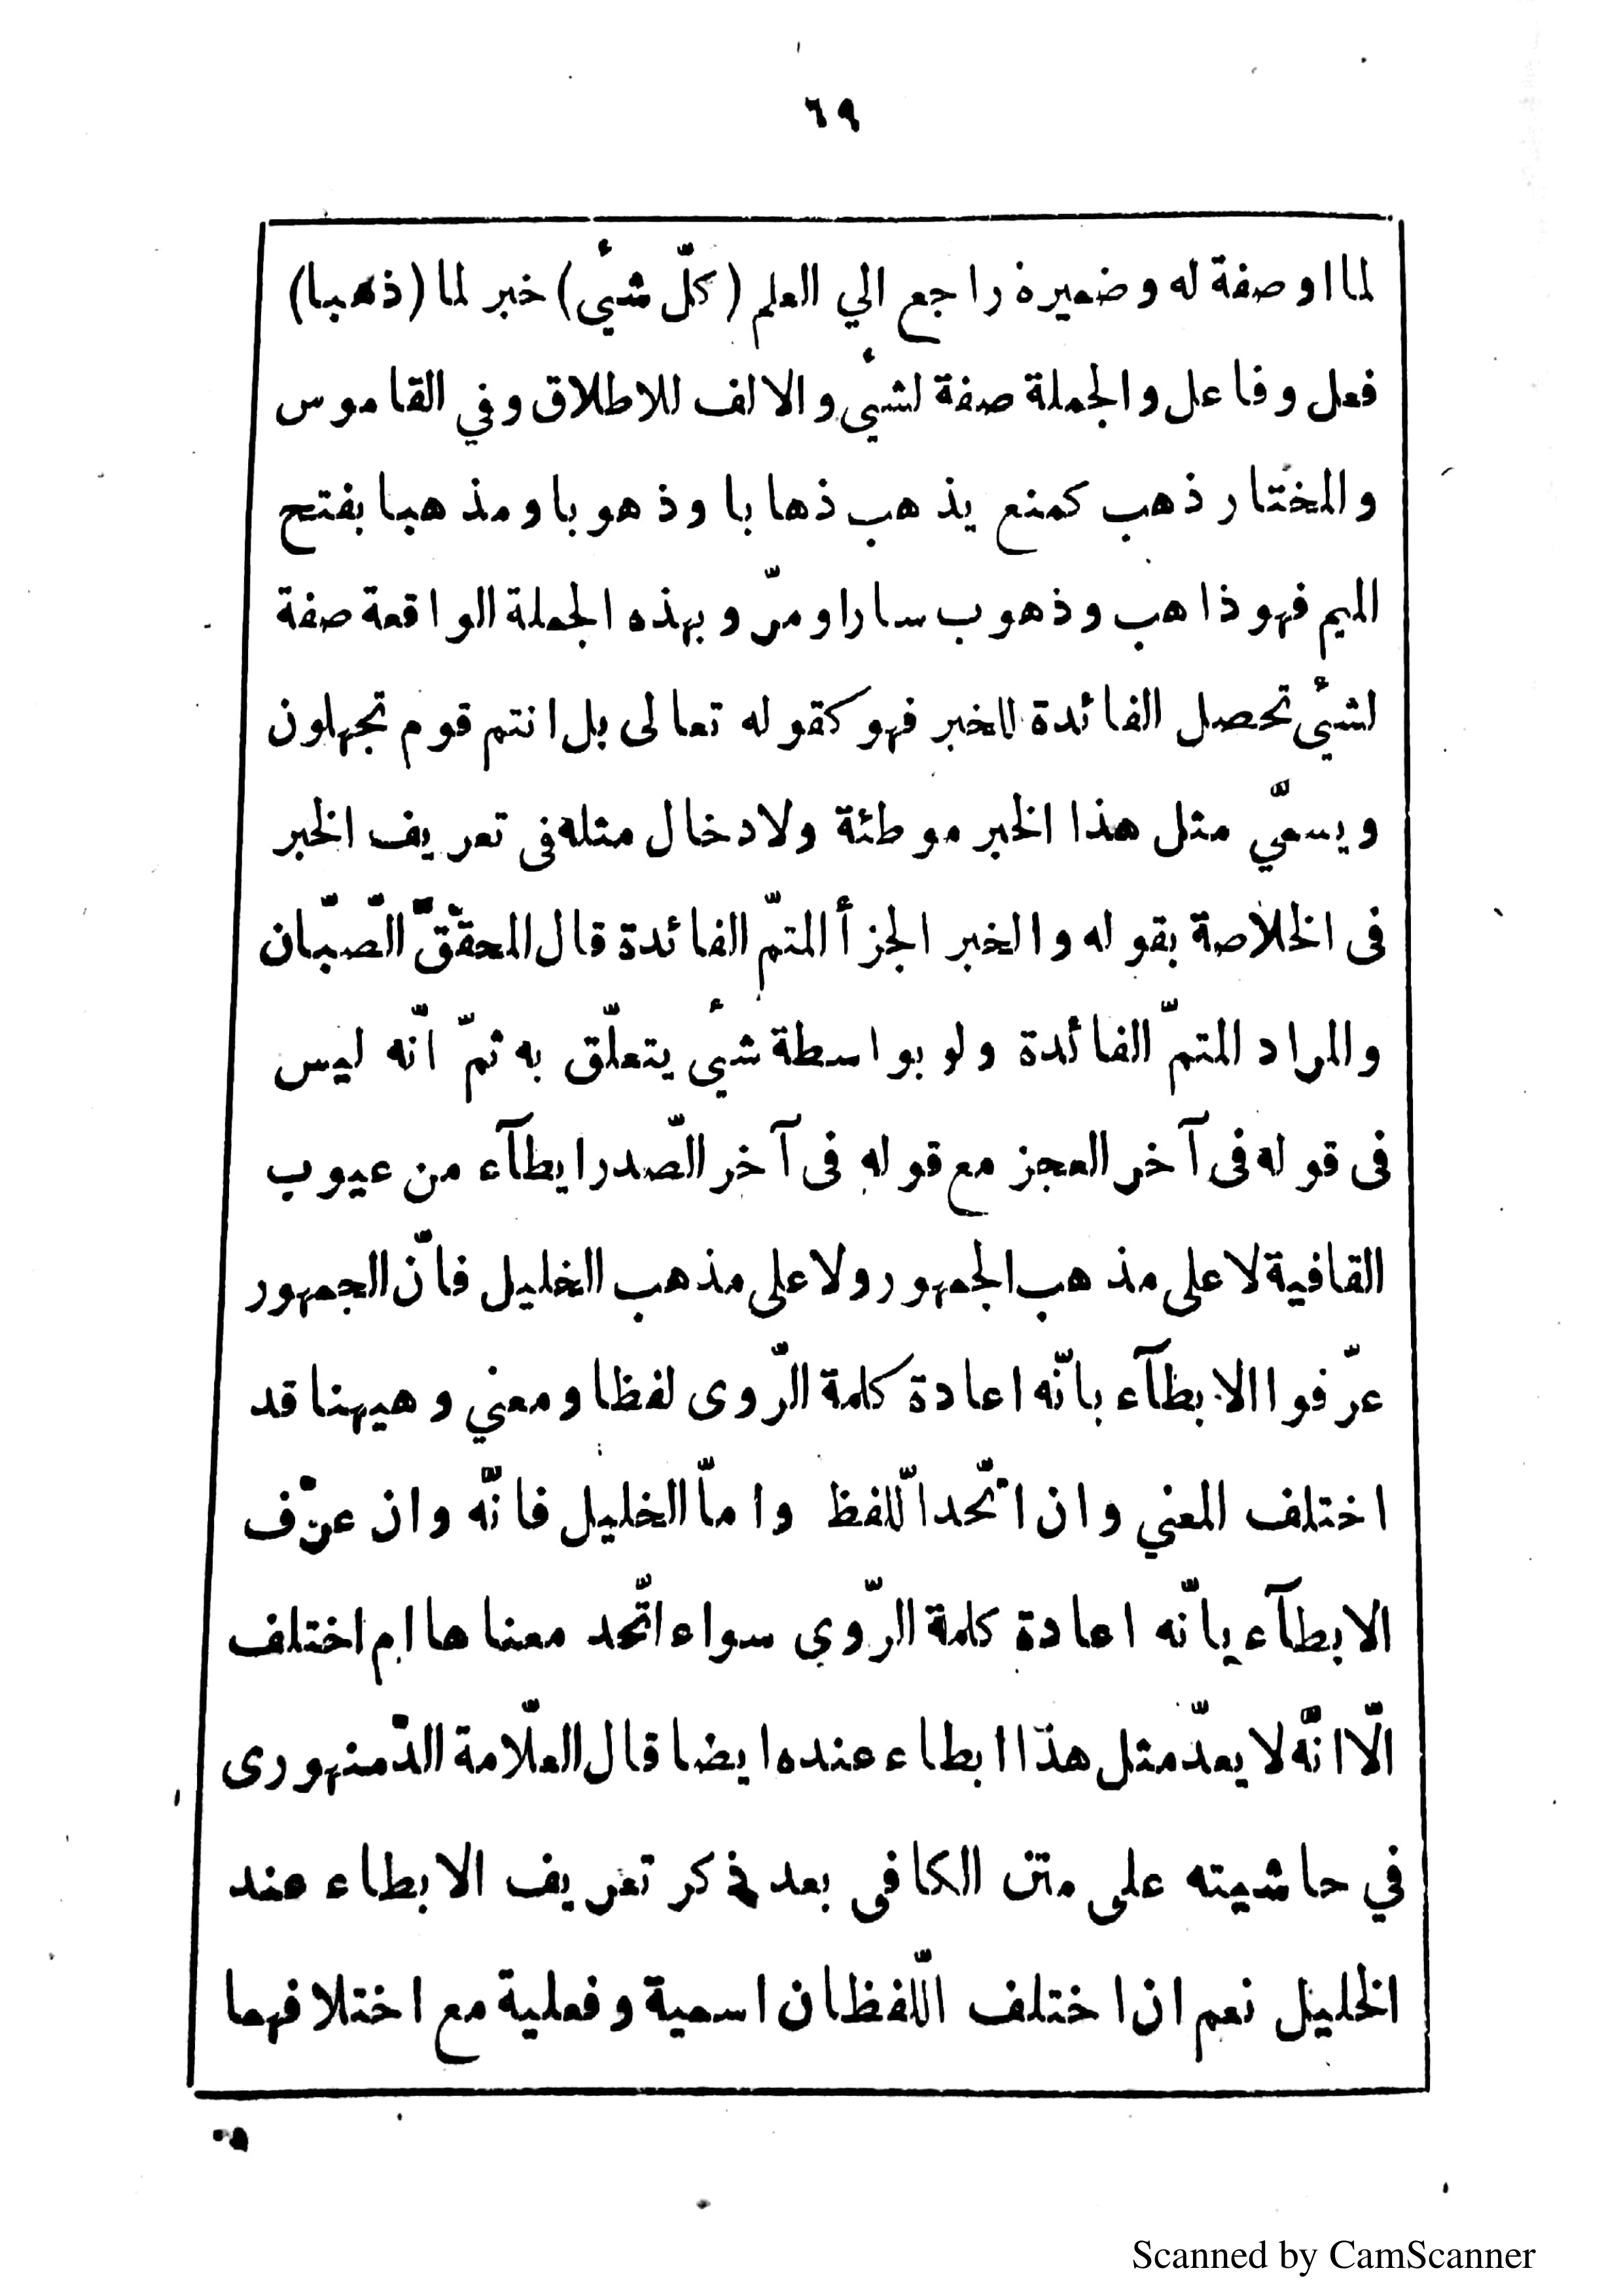 ٦٩
لما او صفة له وضميره راجع الي العلم (كلّ شئي) خبر لما (ذهبا)
فعل وفاعل والجملة صفة لشئي والالف للاطلاق وفي القاموس
والمختار ذهب كمنع يذهب ذهابا وذهوبا ومذهبا بفتح
الميم فهو ذاهب وذهوب سار او مرّ وبهذه الجملة الواقعة صفة
لشئي تحصل الفائدة للخبر فهو كقوله تعالى بل انتم قوم تجهلون
ويسمّي مثل هذا الخبر موطئة ولادخال مثله فى تعريف الخبر
فى الخلاصة بقوله والخبر الجزأ المتمّ الفائدة قال المحقّق الصّبّان
والمراد المتمّ الفائدة ولو بواسطة شئي يتعلّق به ثمّ انّه ليس
فى قوله فى آخر العجز مع قوله فى آخر الصّدر ايطآء من عيوب
القافية لا على مذهب الجمهور ولا على مذهب الخليل فانّ الجمهور
عرّفوا الابطآء بانّه اعادة كلمة الرّوى لفظا ومعني وهيهنا قد
اختلف المعني وان اتّحد اللّفظ وامّا الخليل فانّه وان عرّف
الابطآء بانّه اعادة كلمة الرّوي سواء اتّحد معناها ام اختلف
الّا انّه لا يعدّ مثل هذا ابطاء عنده ايضا قال العلّامة الدّمنهورى
في حاشيته على متن الكافى بعد ذكر تعريف الابطاء عند
الخليل نعم ان اختلف اللّفظان اسمية وفعلية مع اختلافهما
Scanned by CamScanner